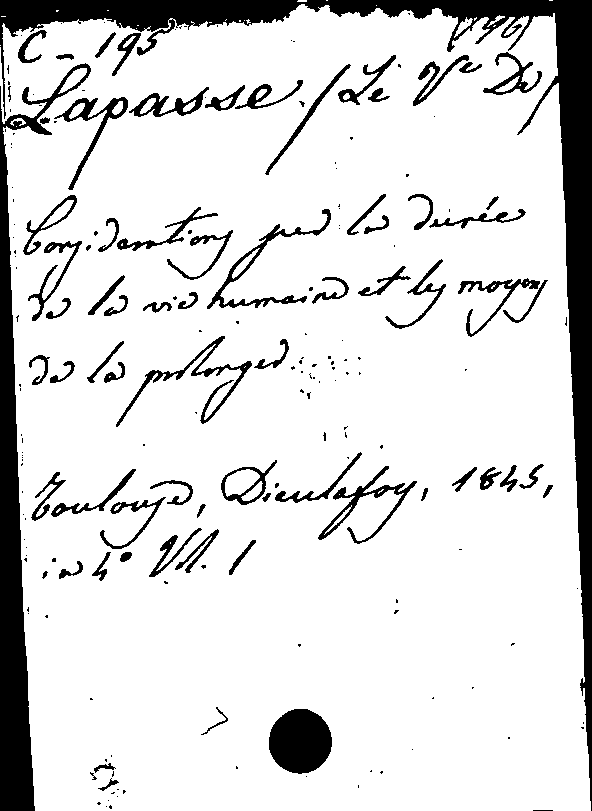 C - 195 (196)
Lapasse / Le Vte De /
Considerations sur la durée
de la vie humaine et les moyens
de la prolonger
Toulouse, Dieulafoy, 1845,
in 4° Vol. 1